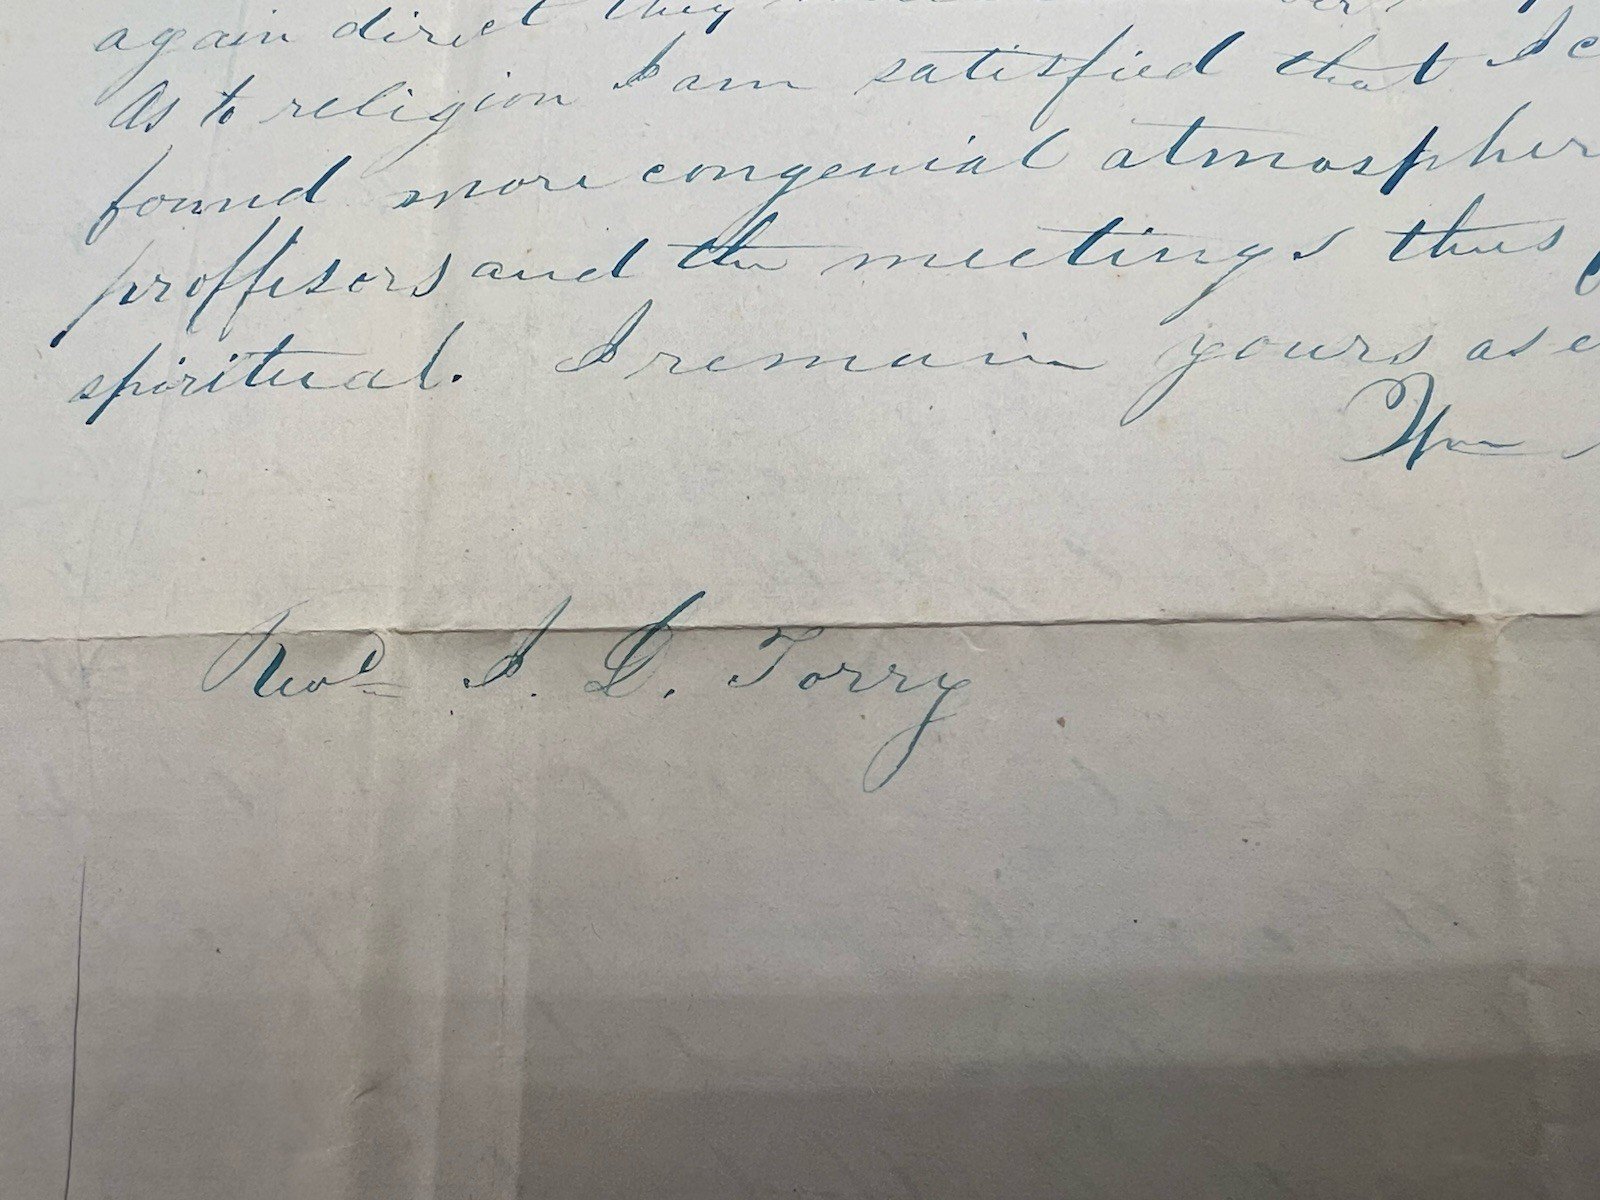 again direct they
As to religion I am satisfied that I c
found more congenial atmospher
proffisors and the meetings thus
spiritual. I remain yours as e
Wm
Revd I. D. Torry